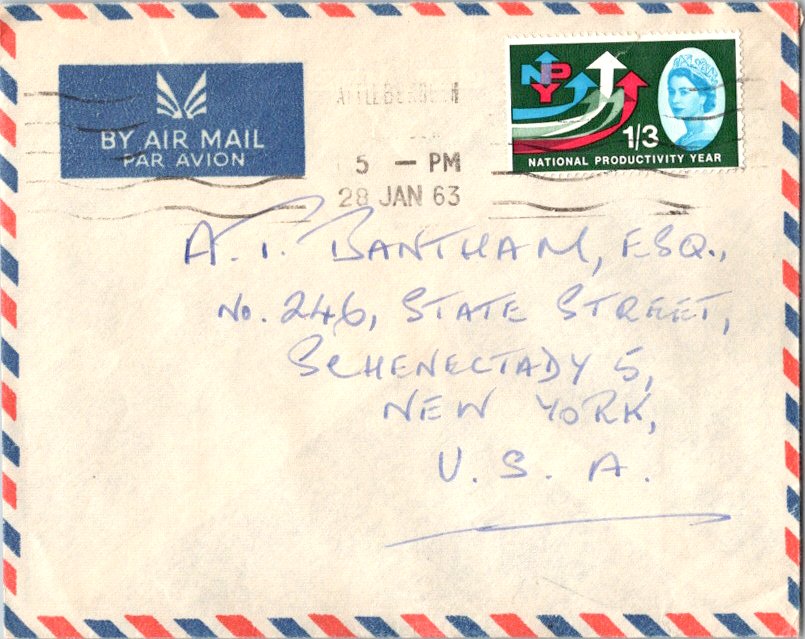 BY AIR MAIL
PAR AVION
ATTLEBOROUGH
5 — PM
28 JAN 63
NPY
1/3
NATIONAL PRODUCTIVITY YEAR
A. T. BANTHAM, ESQ.,
No. 246, STATE STREET,
SCHENECTADY 5,
NEW YORK,
U. S. A.